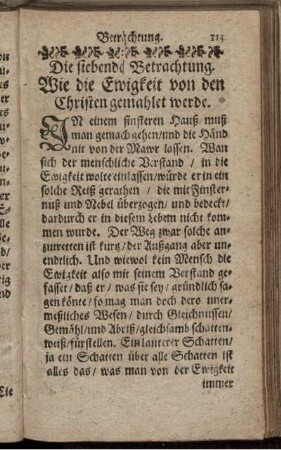 Betrachtung. 113
Die siebende Betrachtung.
Wie die Ewigkeit von den
Christen gemahlet werde.
IN einem finsteren Hauß muß
man gemach gehen/und die Händ
nit von der Mawr lassen. Wan
sich der menschliche Verstand / in die
Ewigkeit wolte einlassen/würde er in ein
solche Reiß gerathen / die mit Finster-
nuß und Nebel überzogen, und bedeckt/
dardurch er in diesem Lebem nicht kom-
men wurde. Der Weg zwar solche an-
zutretten ist kurtz/ der Außgang aber un-
endtlich. Und wiewol kein Mensch die
Ewigkeit also mit seinem Verstand ge-
fasset/ daß er / was sie sey / gründlich sa-
gen könte/ so mag man doch dero uner-
meßliches Wesen / durch Gleichnussen/
Gemähl/und Abriß/gleichsamb schatten-
weiß/fürstellen. Ein lauterer Schatten/
ja ein Schatten über alle Schatten ist
alles das / was man von der Ewigkeit
immer